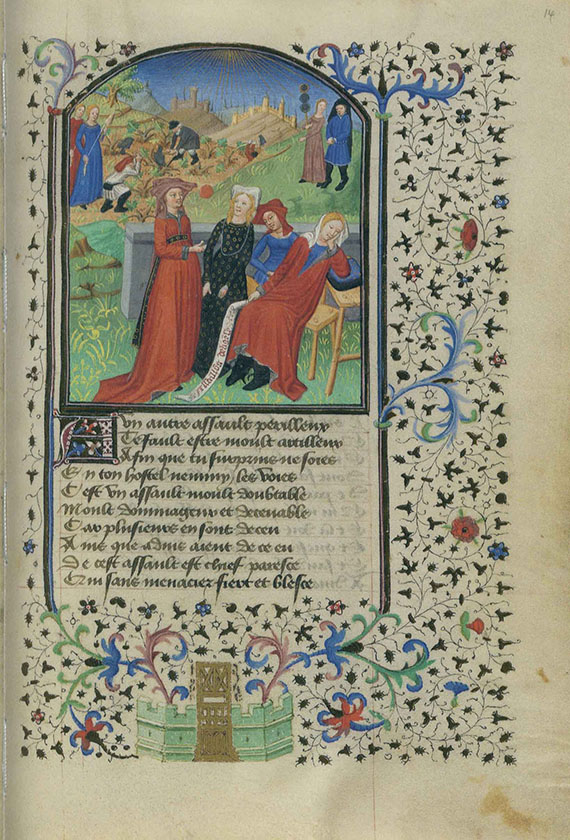 14
A ung autre assault perilleux
Te fault estre moult artilleux
Afin que tu surprins ne soies
En ton hostel nemmy les voies
C est vn assault moult doubtable
Moult dommageux et deceuable
Car plusieurs en sont deceu
A ins que aduis aient de ce eu
De cest assault est chief paresce
Qui sans menacier fiert et blesce